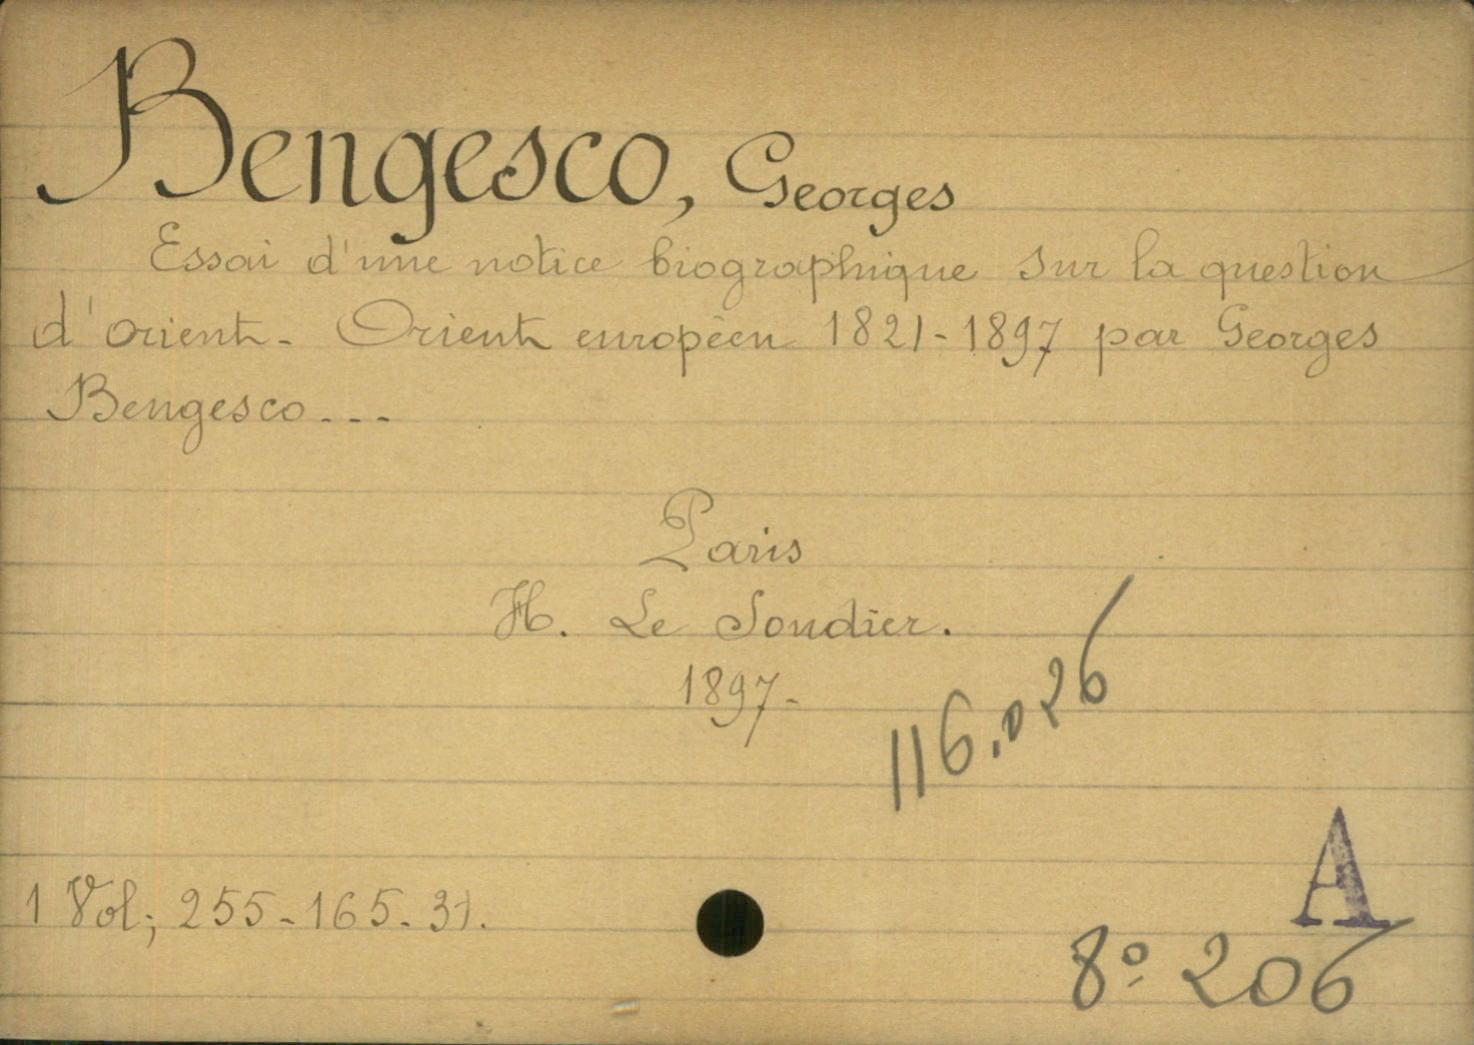 Bengesco, Georges
Essai d'une notice biographique sur la question
d'orient - Orient européen 1821-1897 par Georges
Bengesco...
Paris
H. Le Soudier.
1897-
116.026
1 Vol; 255-165-31.
A
8º 206